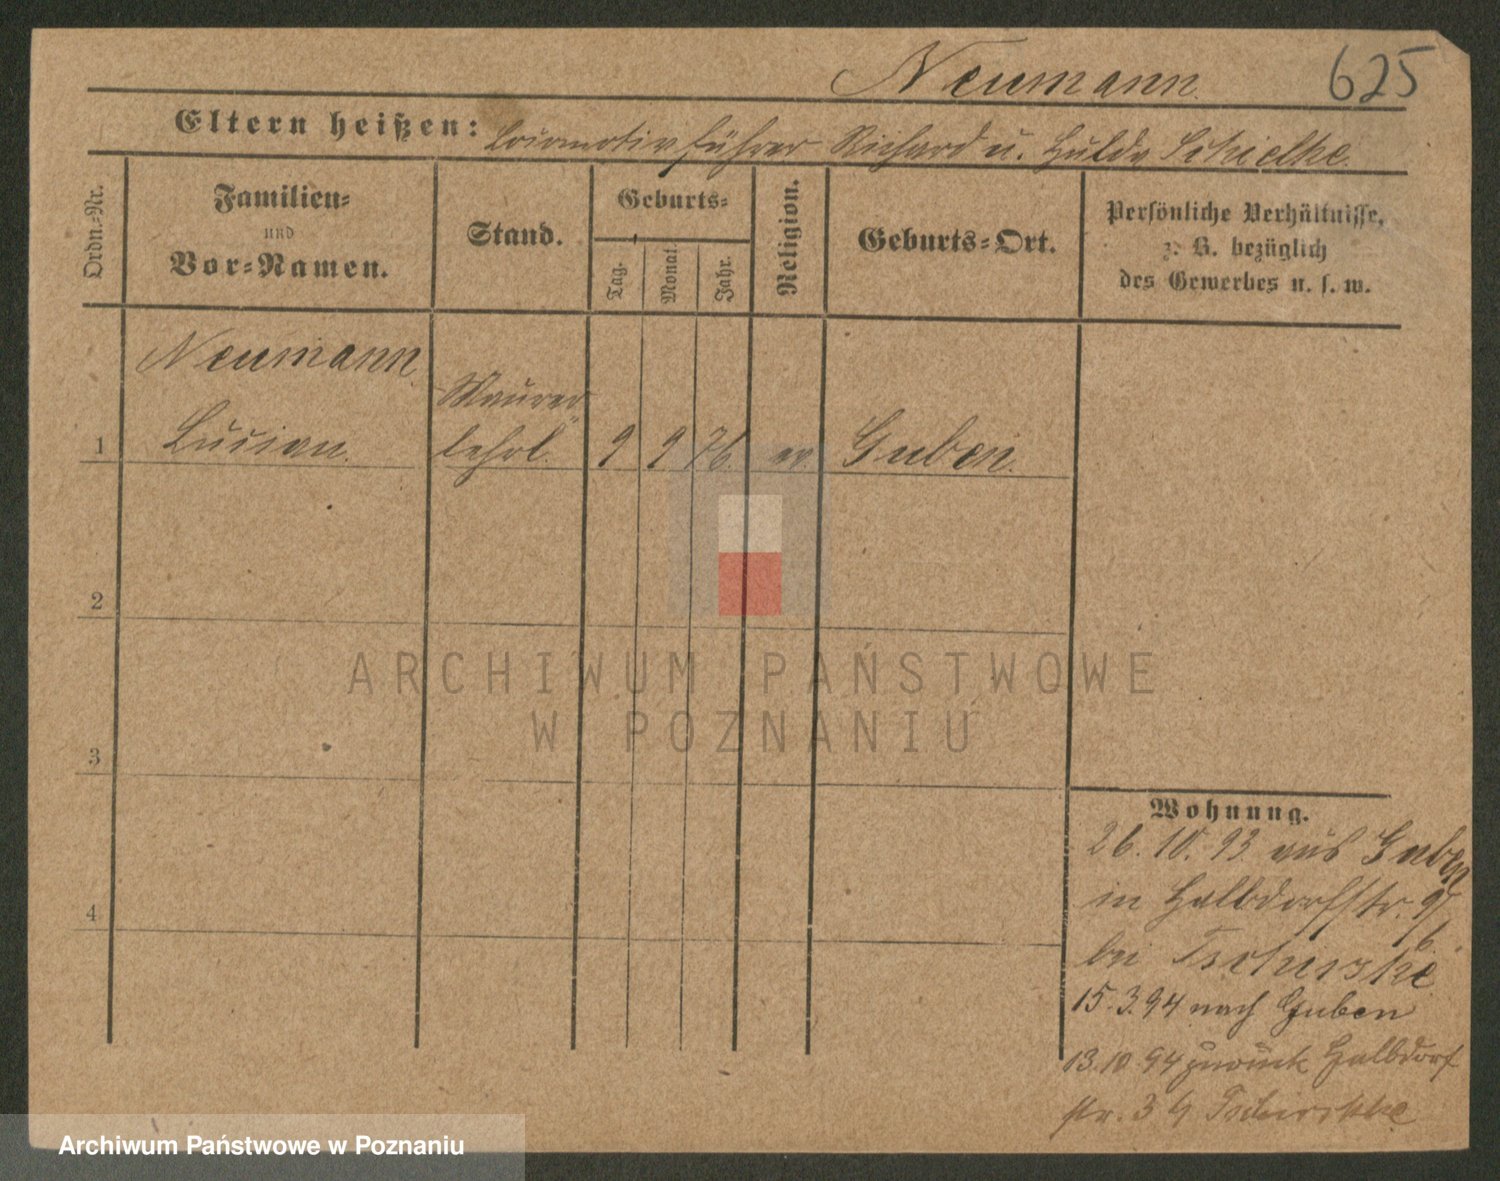 Neumann. 625
Eltern heißen: Locomotivführer Richard u. Hulda Schielke.
Ordn.=Nr.
Familien=
und
Vor=Namen.
Stand.
Geburts=
Tag.
Monat.
Jahr.
Religion.
Geburts=Ort.
Persönliche Verhältnisse,
z. B. bezüglich
des Gewerbes u. s. w.
Neumann
Maurer
1 Lucian. lehrl. 9 9 76. ev. Guben.
2
3
4
ARCHIWUM PAŃSTWOWE
W POZNANIU
Wohnung.
26. 10. 93 aus Guben
in Halbdorfstr.
bei
15. 3. 94 nach Guben
13. 10. 94 zurück Halbdorf
str.
Archiwum Państwowe w Poznaniu